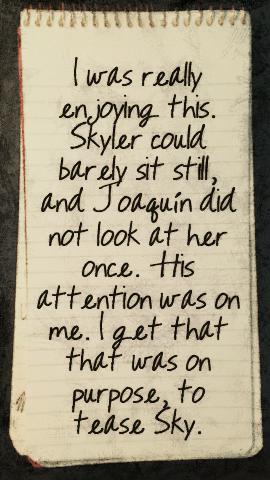 I was really
enjoying this.
Skyler could
barely sit still,
and Joaquín did
not look at her
once. His
attention was on
me. I get that
that was on
purpose, to
tease Sky.